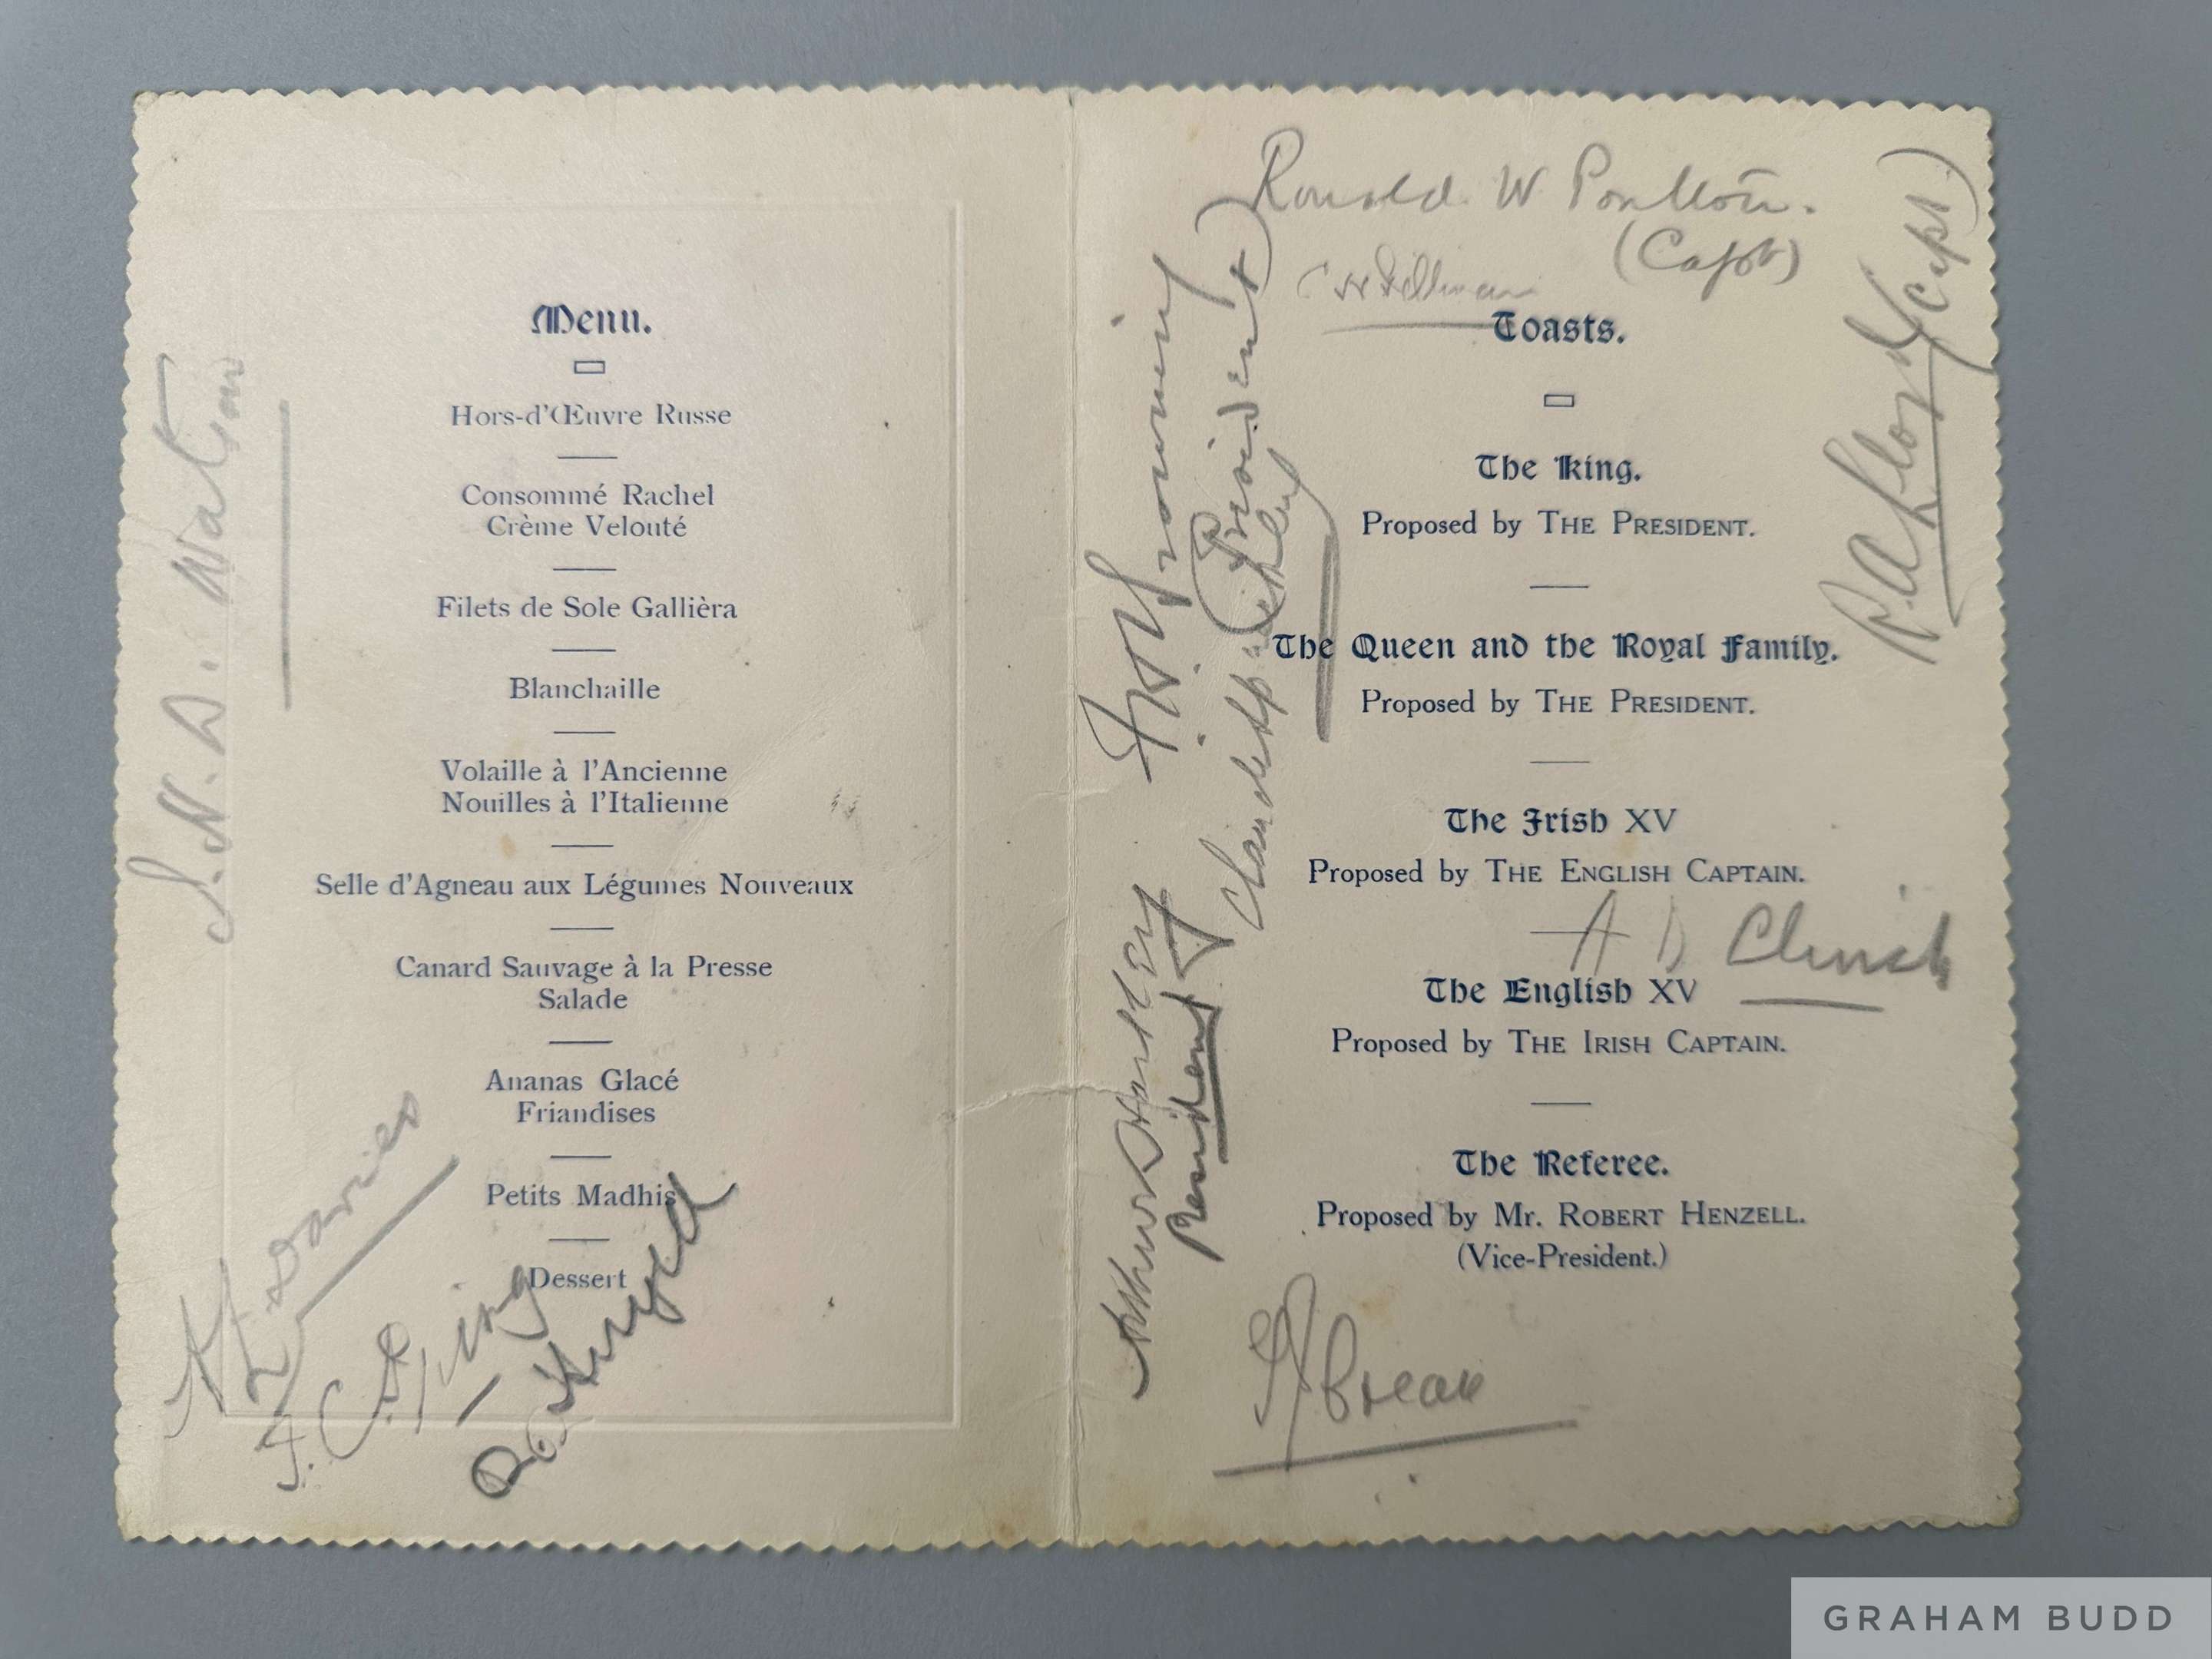 Menu.
Hors-d'Œuvre Russe
Consommé Rachel
Crème Velouté
Filets de Sole Gallièra
Blanchaille
Volaille à l'Ancienne
Nouilles à l'Italienne
Selle d'Agneau aux Légumes Nouveaux
Canard Sauvage à la Presse
Salade
Ananas Glacé
Friandises
Petits Madhis
Dessert
J. N. D. Watson
Davies
Ronald W Poulton.
(Capt)
Toasts.
The King.
Proposed by THE PRESIDENT.
The Queen and the Royal Family.
Proposed by THE PRESIDENT.
The Irish XV
Proposed by THE ENGLISH CAPTAIN.
The English XV
Proposed by THE IRISH CAPTAIN.
The Referee.
Proposed by Mr. ROBERT HENZELL.
(Vice-President.)
R. A. Lloyd (Capt)
(President)
President
GRAHAM BUDD